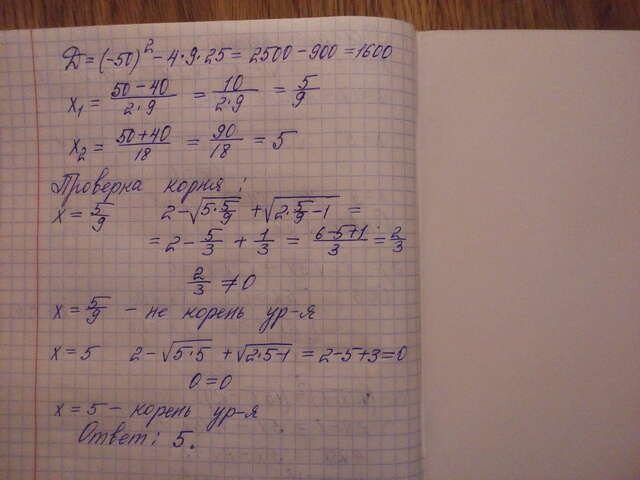 Д = (-50)² - 4·9·25 = 2500 - 900 = 1600
x₁ = (50-40)/(2·9) = 10/(2·9) = 5/9
x₂ = (50+40)/18 = 90/18 = 5
Проверка корня:
x = 5/9   2 - √(5·5/9) + √(2·5/9 - 1) =
= 2 - 5/3 + 1/3 = (6-5+1)/3 = 2/3
2/3 ≠ 0
x = 5/9 - не корень ур-я
x = 5   2 - √(5·5) + √(2·5-1) = 2-5+3=0
0 = 0
x = 5 - корень ур-я
Ответ: 5.